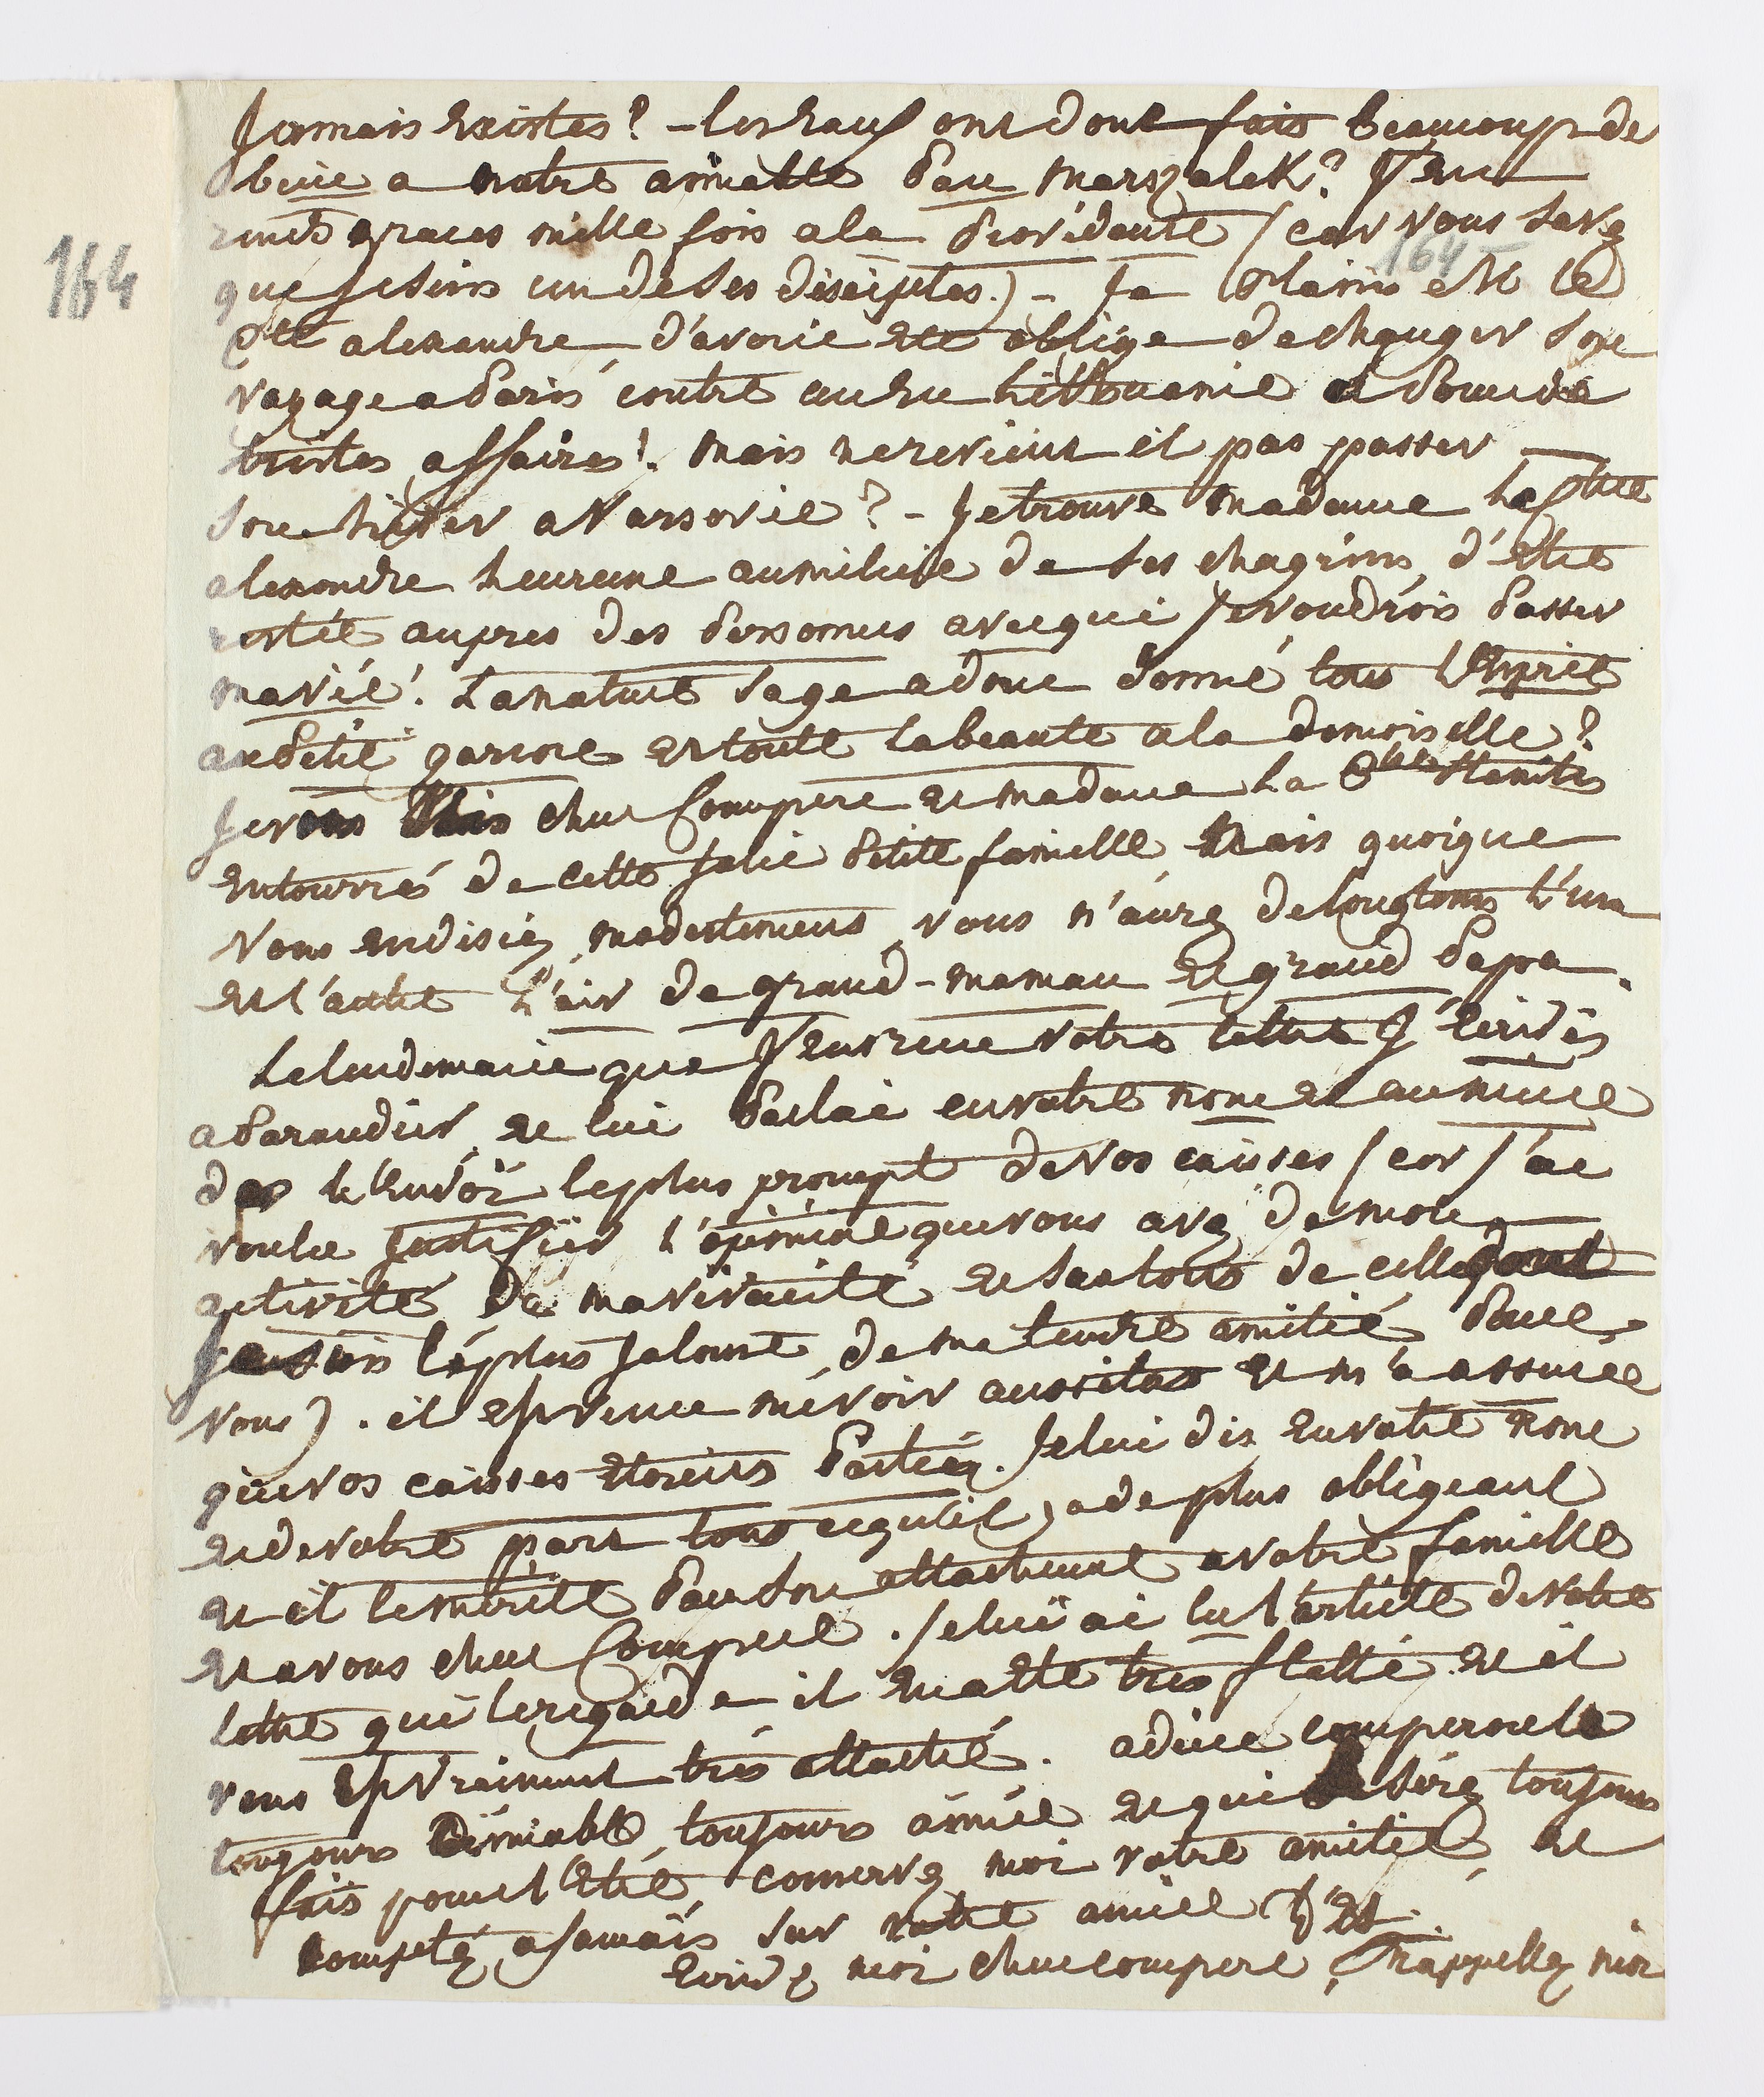 164
164
Jamais existes? - les eaux ont donc fait beaucoup de
bien a notre aimable Pan Marszalek? J'en
rends graces mille fois a la providente (car vous savez
que je suis un de ses disciples.) - Je plains M le
Cte alexandre d'avoir ete oblige de changer son
voyage a Paris contre un en Litthuanie et pour de
tristes affaires! mais ne revient il pas passer
son hiver a Varsovie? - Je trouve madame La Ctsse
alexandre heureuse au milieu de ses chagrins, d'etre
restée aupres des personnes avec qui Je voudrois passer
ma vie! La nature sage a donc donné tous L'esprit
au petit garcone et toute la beaute a la demoiselle?
Je vous vois cher Compere et madame La Ctsse Stanislas
entourrés de cette Jolie petite famille, mais quoique
Vous en disiez modestement, vous n'aurez de longtems L'un
et l'autre L'air de grand-maman et grand papa.
Le lendemain que J'eus recue votre lettre J'ecrivis
a Parandier, et lui parlai en votre nom et au mien
des l'envoi le plus prompt de vos caisses (car J'ai
voulu Justifier L'opinione que vous avez de mon
activité, de ma vivacité et surtout de celle dont
Je suis le plus Jalouse, de ma tendre amitié pour
vous). il est venue me voir aussitot et m'a assurée
que vos caisses etoient parties. Je lui dis en votre nom
et de votre part tout ce qu'il y a de plus obligeant
et il le merite par son attachement a votre famille
et a vous cher Compere. Je lui ai lu l'article de votre
lettre qui le regarde il en a ete tres flatté et il
vous est vraiment très attaché. adieu compere le
toujours aimable, toujours aimée et qui serez toujours
fais pour l'etre, conservez moi votre amitié, et
comptez a Jamais sur votre amie
Ecrivez moi cher compere, rappellez moi